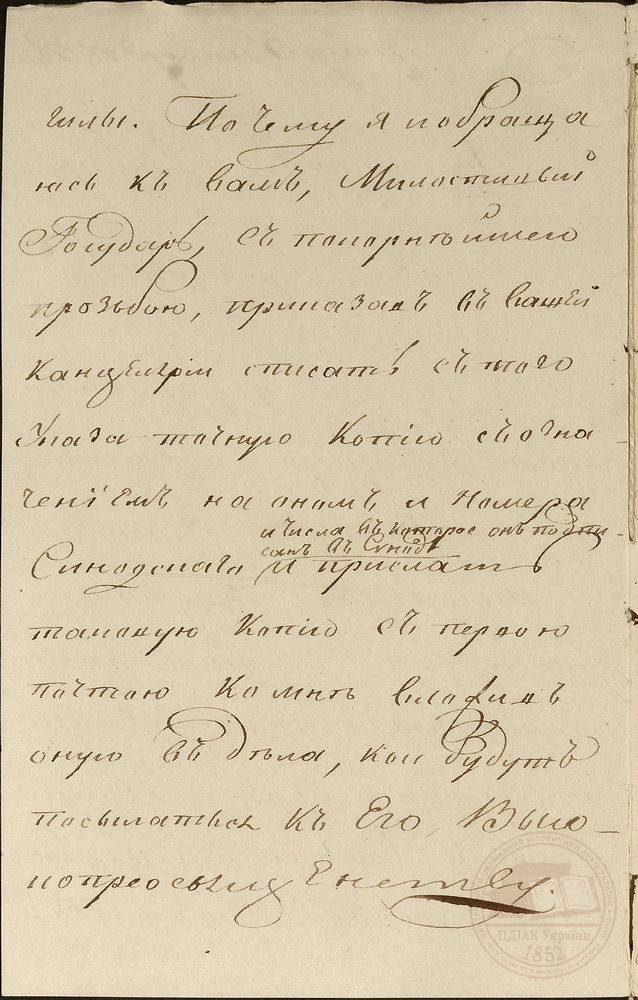 чилы. Почему я и обраща
юсь къ Вамъ, Милостивый
Государь, съ покорнѣйшею
прозьбою, приказать въ вашей
Канцеляріи списать съ того
Указа точную Копію съ озна
ченіемъ на ономъ и Номера
и числа въ которое онъ подпи-
санъ въ Сѵнодѣ
Синодскаго и прислать
таковую Копію съ первою
почтою ко мнѣ вложивъ
оную въ дѣла, кои будутъ
посылаться къ Его, Высо-
копреосвященству.
ЦДІАК України
1852